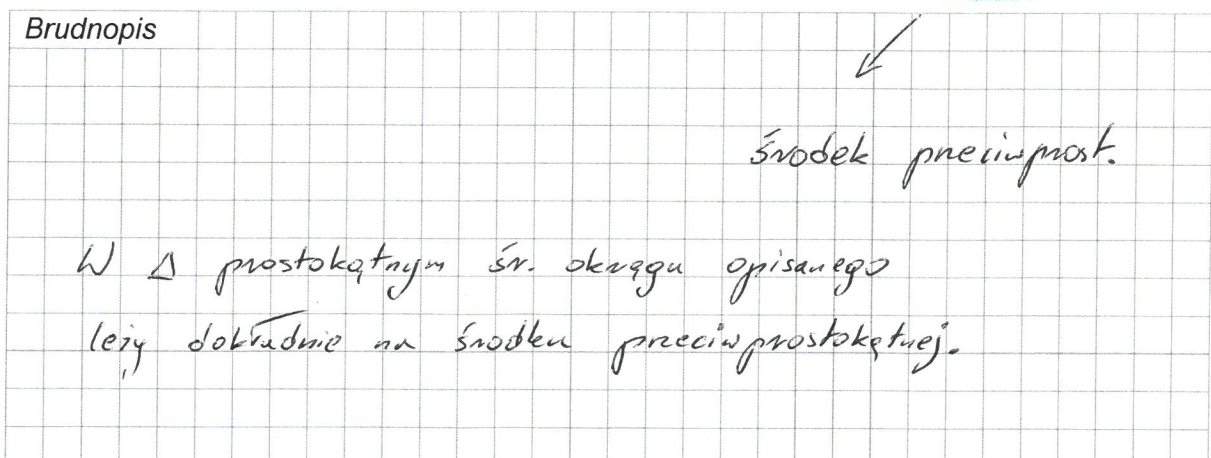 Brudnopis
środek przeciwprost.
W Δ prostokątnym śr. okręgu opisanego
leży dokładnie na środku przeciwprostokątnej.